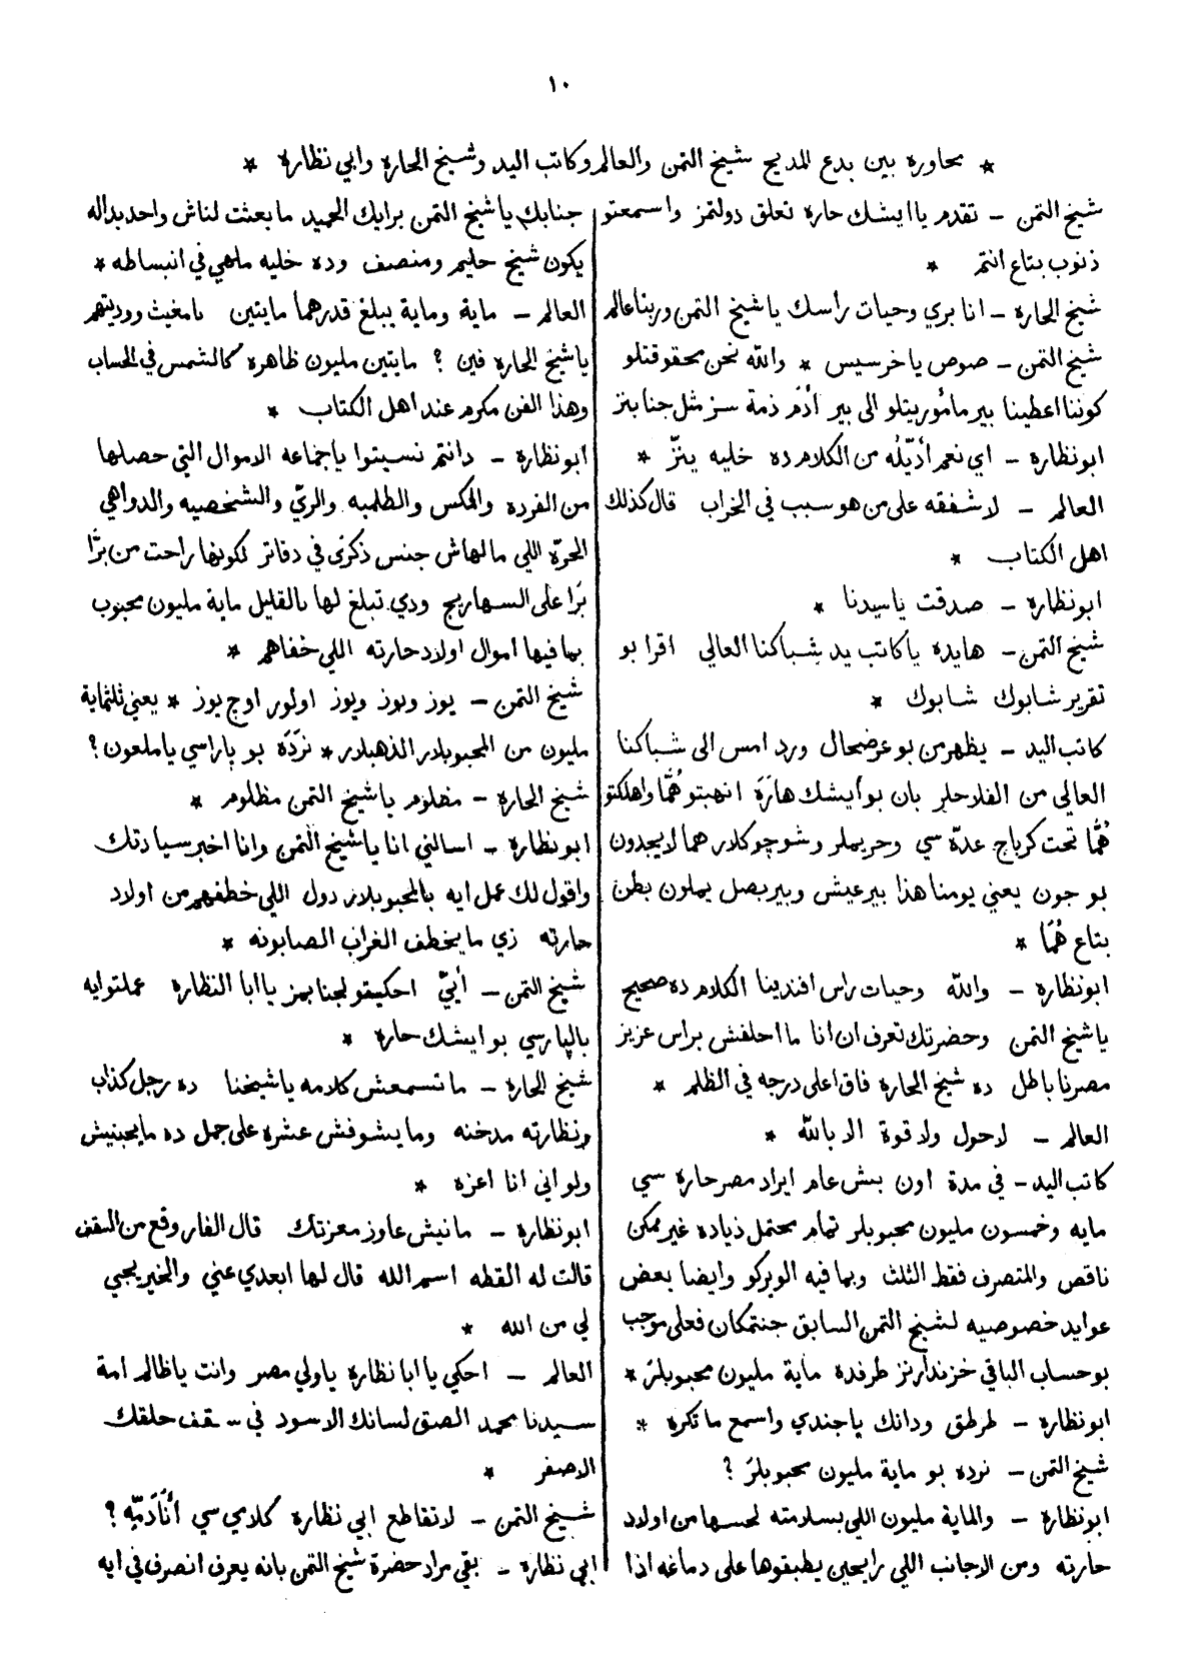 ١٠
* محاورة بين بدع المديح شيخ التمن والعالم وكاتب اليد وشيخ الحاره وابي نظارة *
شيخ التمن – تقدم يا ايشك حاره تعلق دولتمز واسمعتو
ذنوب بتاع انتم *
شيخ الحاره – انا بري وحيات رأسك يا شيخ التمن وربنا عالم
شيخ التمن – صوص يا خرسيس * والله نحن محقوقتلو
كوننا اعطينا بير مأموريتلو الى بير أدَم ذمة سز مثل جنابنز
ابو نظاره – اي نعم أدّيلُه من الكلام ده خليه ينزّ *
العالم – لا شفقه على من هو سبب في الخراب قال كذلك
اهل الكتاب *
ابو نظاره – صدقت يا سيدنا *
شيخ التمن – هايده يا كاتب يد شباكنا العالي اقرا بو
تقرير شابوك شابوك *
كاتب اليد – يظهر من بو عرضحال ورد امس الى شباكنا
العالي من الفلاحلر بان بو أيشك هارَهَ انهبتو هُمّا واهلكتو
هُمّا تحت كرباج عدّة سي وحريملر وشوجوكلار هما لا يجدون
بو جون يعني يومنا هذا بير عيش وبير بصل يملون بطن
بتاع هُمّا *
ابو نظاره – والله وحيات راس افندينا الكلام ده صحيح
يا شيخ التمن وحضرتك تعرف ان انا ما احلفش براس عزيز
مصرنا باطل ده شيخ الحاره فاق اعلى درجه في الظلم *
العالم – لا حول ولا قوة الا بالله *
كاتب اليد – في مدة اون بش عام ايراد مصر حاره سي
مايه وخمسون مليون محبوبلر تمام محتمل زياده غير ممكن
ناقص والمتصرف فقط الثلث وبما فيه الويركو وايضا بعض
عوايد خصوصيه لشيخ التمن السابق جنتمكان فعلى موجب
بو حساب الباقي خزندارنز طرفده ماية مليون محبوبلر *
ابو نظاره – طرطق ودانك يا جندي واسمع ما تكره *
شيخ التمن – نرده بو ماية مليون محبوبلرَ ؟
ابو نظارة – والماية مليون اللي بسلامته لحسها من اولاد
حارته ومن الاجانب اللي رايحين يطبقوها على دماغه اذا
جنابك يا شيخ التمن برايك الحميد ما بعثت لناش واحد بداله
يكون شيخ حليم ومنصف وده خليه ملهي في انبساطه *
العالم – ماية وماية يبلغ قدرهما مايتين يا مغيث ووديتهم
يا شيخ الحاره فين ؟ مايتين مليون ظاهرة كالشمس في الحساب
وهذا الفن مكرم عند اهل الكتاب *
ابو نظاره – دانتم نسيتوا يا جماعه الاموال التي حصلها
من الفرده والمكس والطلمبه والريّ والشخصيه والدواهي
الحرّه اللي مالهاش جنس ذكرَى في دفاتر لكونها راحت من برَّا
بَرا على السهاريج ودي تبلغ لها بالقليل ماية مليون محبوب
بما فيها اموال اولاد حارته اللي خفاهم *
شيخ التمن – يوز ويوز ويوز اولور اوج يوز * يعني ثلثماية
مليون من المحبوبلدر الذهبلدر * نرَدَه بو پاراسي يا ملعون ؟
شيخ الحاره – مظلوم يا شيخ التمن مظلوم *
ابو نظاره – اسالني انا يا شيخ التمن وانا اخبر سيادتك
واقول لك عمل ايه بالمحبوبلار دول اللي خطفهم من اولاد
حارته زي ما يخطف الغراب الصابونه *
شيخ التمن – أيّ احكيتو لجنابمز يا ابا النظاره عملتو ايه
بالپارسي بو ايشك حارة *
شيخ الحاره – ما تسمعش كلامه يا شيخنا ده رجل كذاب
ونظارته مدخنه وما يشوفش عشره على جمل ده ما يحبنيش
ولو اني انا اعزه *
ابو نظاره – مانيش عاوز معزتك قال الفار وقع من السقف
قالت له القطه اسم الله قال لها ابعدي عني والخير يجي
لي من الله *
العالم – احكي يا ابا نظارة يا ولي مصر وانت يا ظالم امة
سيدنا محمد الصق لسانك الاسود في سقف حلقك
الاصفر *
شيخ التمن – لا تقاطع ابي نظاره كلامي سي أنّادَيّه ؟
ابي نظاره – بقي مراد حضرة شيخ التمن بانه يعرف انصرف في ايه